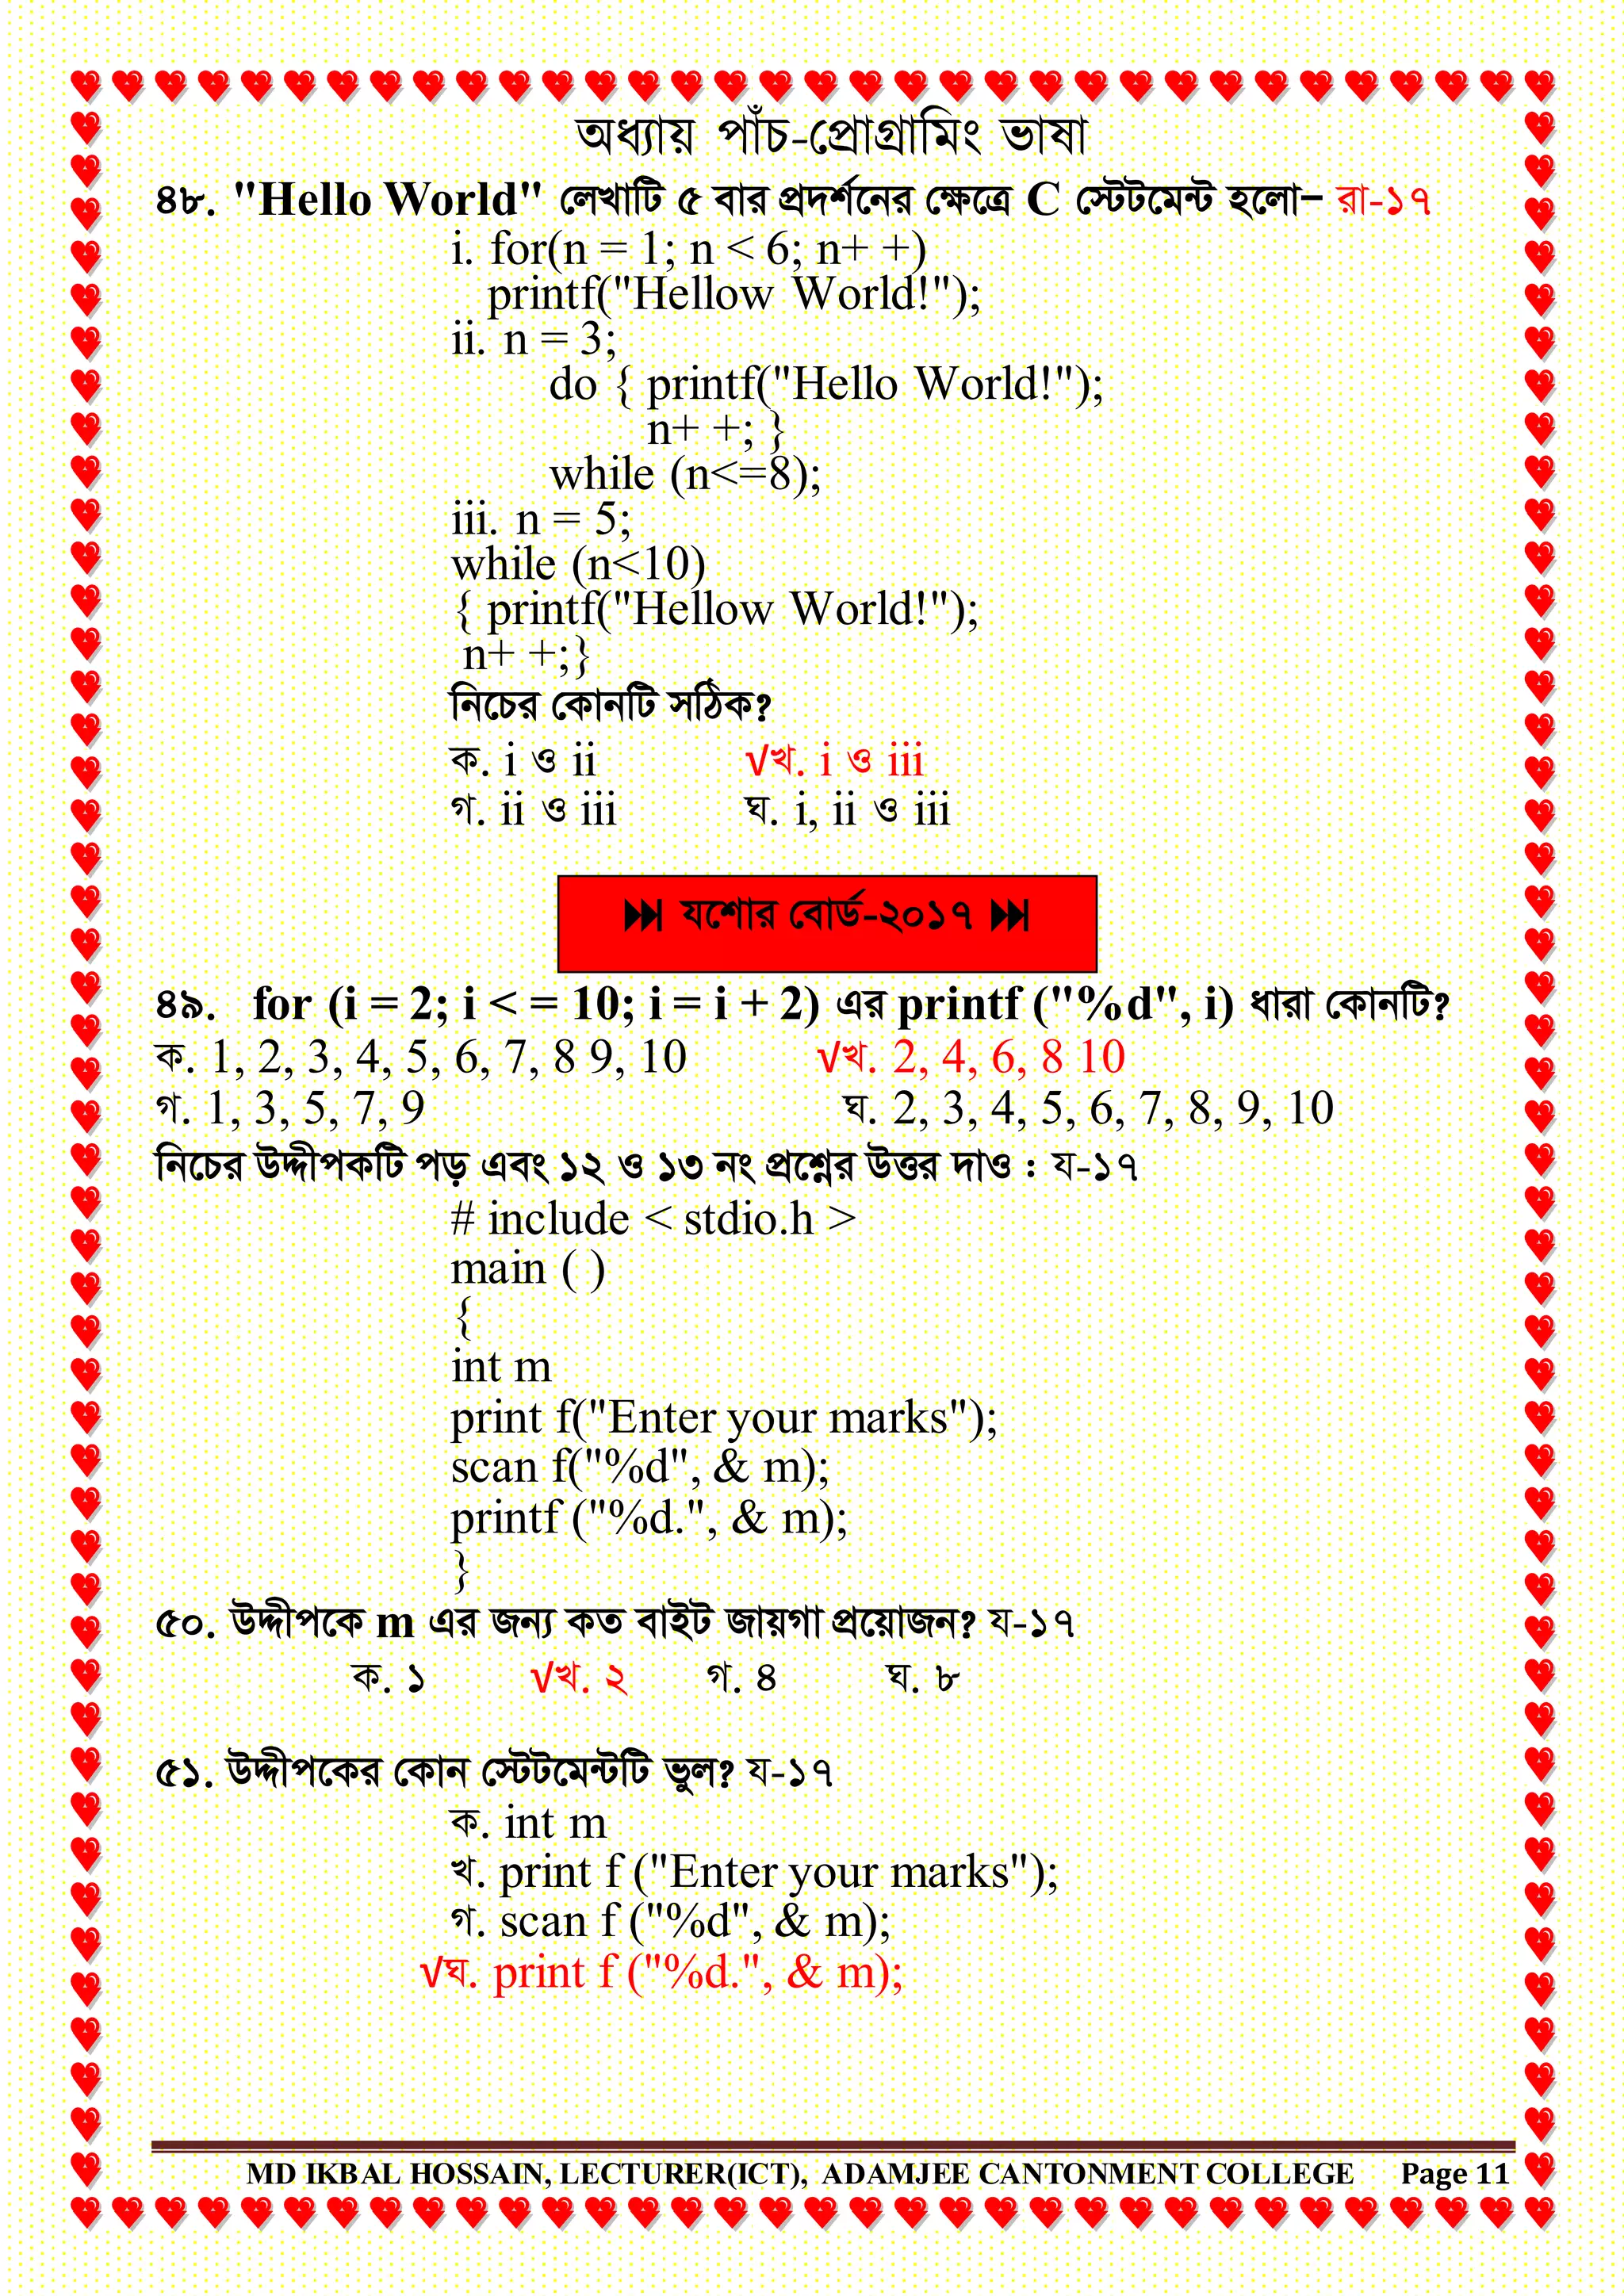 অধ্যায় পাঁচ-প্রোগ্রামিং ভাষা
৪৮. "Hello World" লেখাটি ৫ বার প্রদর্শনের ক্ষেত্রে C স্টেটমেন্ট হলো– রা-১৭
i. for(n = 1; n < 6; n+ +)
printf("Hellow World!");
ii. n = 3;
do { printf("Hello World!");
n+ +; }
while (n<=8);
iii. n = 5;
while (n<10)
{ printf("Hellow World!");
n+ +;}
নিচের কোনটি সঠিক?
ক. i ও ii √খ. i ও iii
গ. ii ও iii ঘ. i, ii ও iii
যশোর বোর্ড-২০১৭
৪৯. for (i = 2; i < = 10; i = i + 2) এর printf ("%d", i) ধারা কোনটি?
ক. 1, 2, 3, 4, 5, 6, 7, 8 9, 10 √খ. 2, 4, 6, 8 10
গ. 1, 3, 5, 7, 9 ঘ. 2, 3, 4, 5, 6, 7, 8, 9, 10
নিচের উদ্দীপকটি পড় এবং ১২ ও ১৩ নং প্রশ্নের উত্তর দাও : য-১৭
# include < stdio.h >
main ( )
{
int m
print f("Enter your marks");
scan f("%d", & m);
printf ("%d.", & m);
}
৫০. উদ্দীপকে m এর জন্য কত বাইট জায়গা প্রয়োজন? য-১৭
ক. ১ √খ. ২ গ. ৪ ঘ. ৮
৫১. উদ্দীপকের কোন স্টেটমেন্টটি ভুল? য-১৭
ক. int m
খ. print f ("Enter your marks");
গ. scan f ("%d", & m);
√ঘ. print f ("%d.", & m);
MD IKBAL HOSSAIN, LECTURER(ICT), ADAMJEE CANTONMENT COLLEGE Page 11